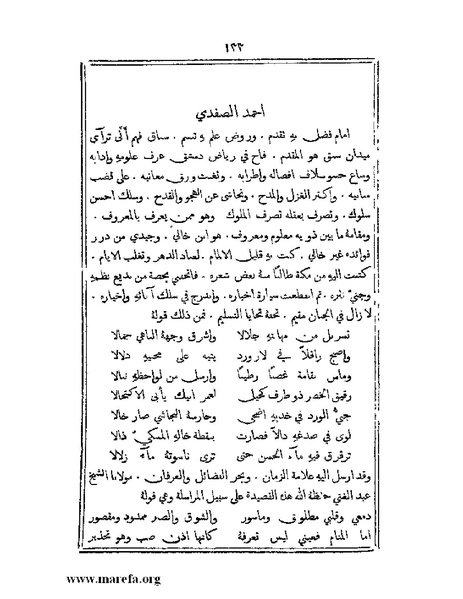 ١٣٣
احمد الصفدي
امام فضل به تقدم . وروض علم به تبسم . سباق فهم أنّى تراآى
ميدان سبق هو المقدم . فاح في رياض دمشق عرف علومه وادابه
وساغ حسو سلاف افضاله واطرابه . وتغنت ورق معانيه . على قضب
مبانيه . واكثر الغزل والمدح . وتحاشى عن الهجو والقدح . وسلك احسن
سلوك . وتصرف بعقله تصرف الملوك . وهو ممن يعرف بالمعروف .
ومقامه ما بين ذويه معلوم ومعروف . هو ابن خالي . وجيدي من درر
فوائده غير خالي . كنت به قليل الالمام . لعناد الدهر وتغلب الايام .
كتبت اليه من مكة طالبًا منه بعض شعره . فاتحفني بحصة من بديع نظمه
وجنيّ نثره . ثم انقطعت سيارة اخباره . واندرج في سلك آبائه واخياره .
لا زال في الجنان مقيم . تحفه تحايا التسليم . فمن ذلك قولهُ
تسربل من مهابته جلالا واشرق وجههُ الباهي جمالا
واصبح رافلاً في لازورد يتيه على محبيه دلالا
وماس بقامة غصنًا رطيبًا وارسل من لواحظه نبالا
رقيق الخصر ذو طرف كحيل لعمر ابيك يأبى الاكتحالا
جنيُّ الورد في خديه اضحى وحارسه النجاشي صار خالا
لوى في صدغه دالاً فصارت بنقطة خاله المسكيّ ذالا
ترقرق فيه مآء الحسن حتى ترى ناسوتهُ مآءً زلالا
وقد ارسل اليه علامة الزمان . وبحر الفضائل والعرفان . مولانا الشيخ
عبد الغني حفظهُ الله هذه القصيدة على سبيل المراسلة وهي قولهُ
دمعي وقلبي مطلوق ومأسور والشوق والصبر ممدود ومقصور
اما المنام فعيني ليس تعرفهُ كانها اذن صب وهو تحذير
www.marefa.org